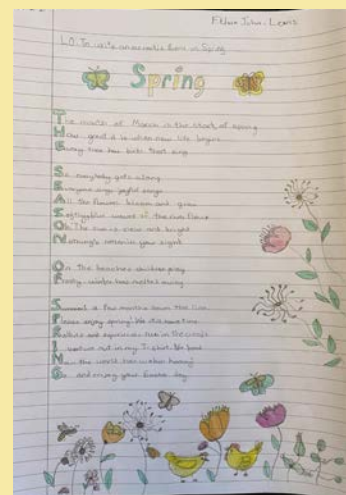 L.O. To write an acrostic poem on Spring
Spring
The month of March is the start of spring
How great it is when new life begins
Every tree has birds that sing
So everybody gets along
Everyone sings joyful songs
All the flowers bloom and grow
Softly blow waves of the river flows
Oh! The sun is shine and bright
Nothing's your sight
On the beaches children play
Frosty winter has melted away
Summer's a few months down the line
Please enjoy spring! We still have time
Rabbits and squirrels run in the
I venture out in my T-shirt. No hood
Now the world has woken
Go and enjoy your Easter day